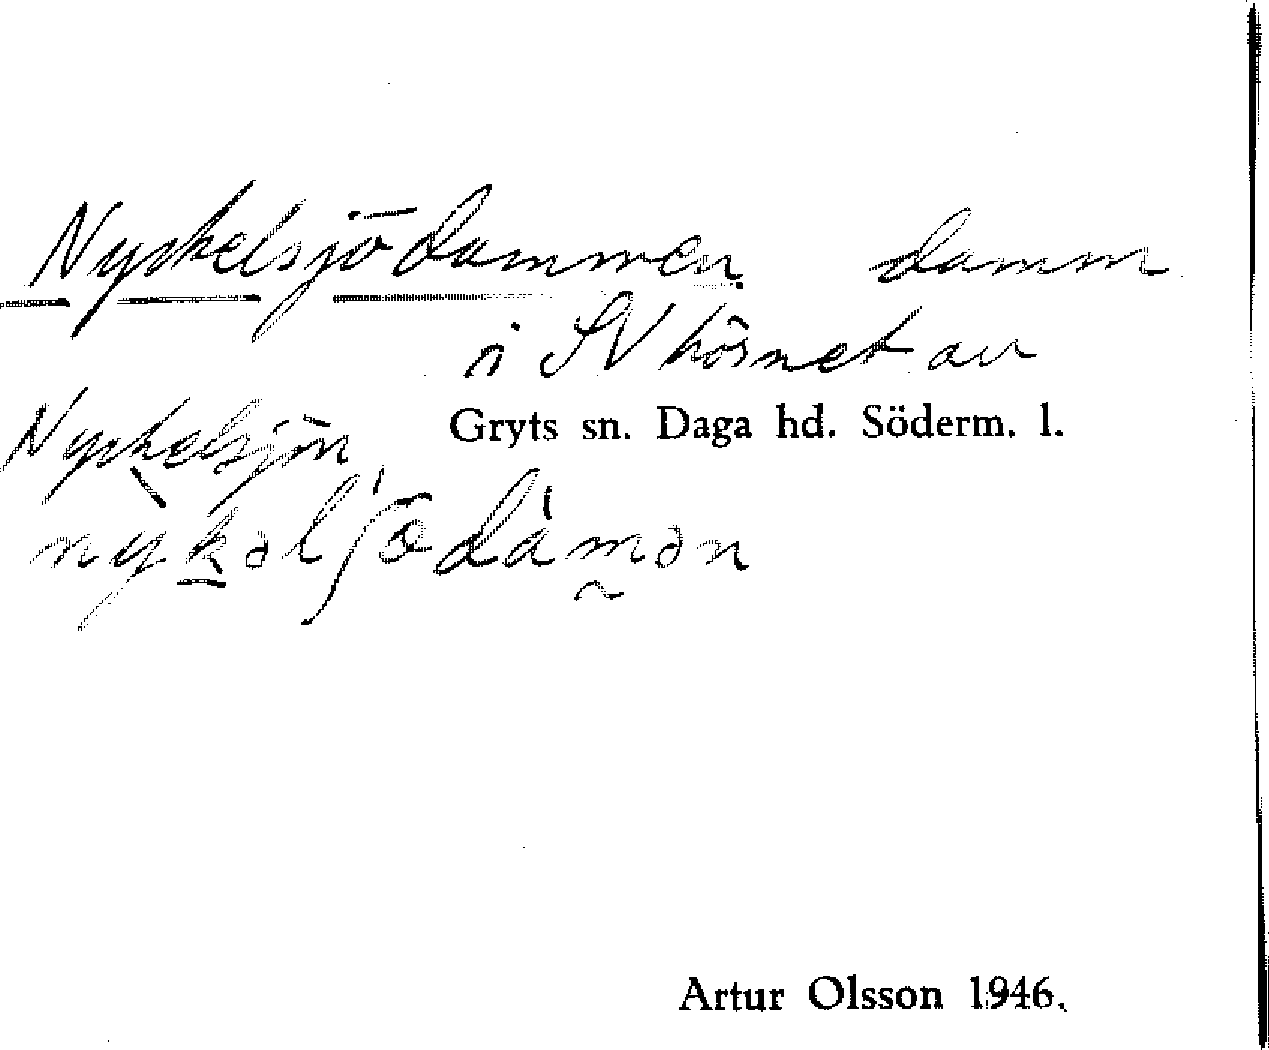 Nyckelsjödammen damm
i SV hörnet av
Nyckelsjön
Gryts sn. Daga hd. Söderm. l.
Artur Olsson 1946.